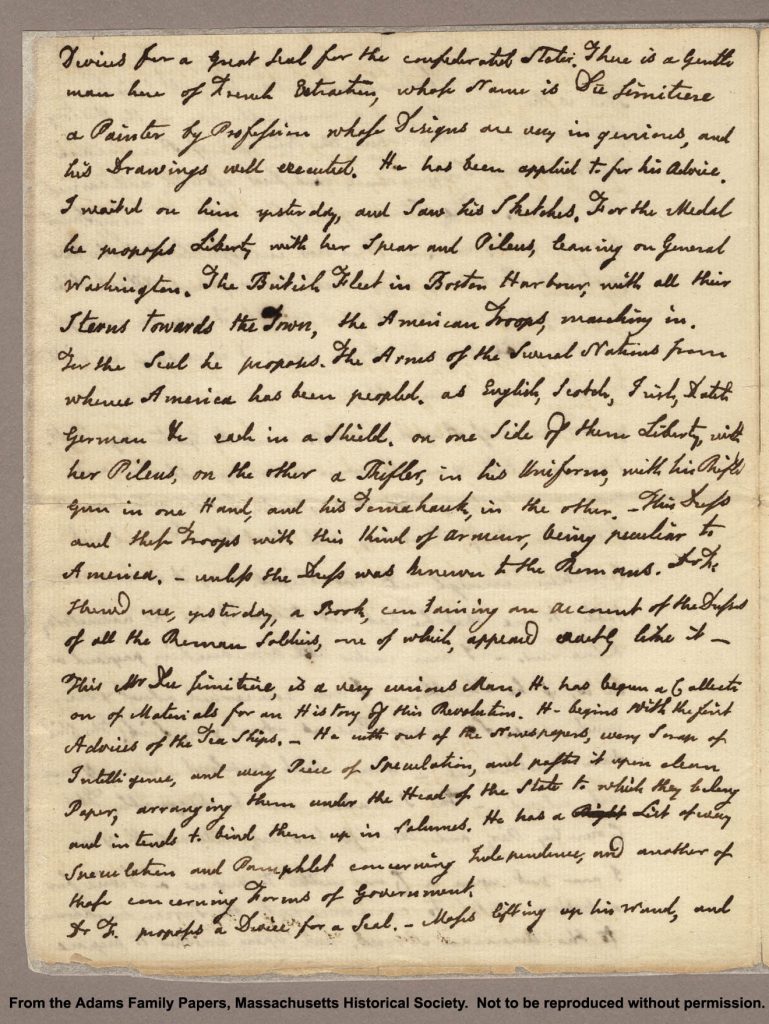 Devices for a great Seal for the confederated States. There is a Gentle
man here of French Extraction, whose Name is Du simitiere
a Painter by Profession whose Designs are very ingenious, and
his Drawings well executed. He has been applied to for his Advice.
I waited on him yesterday, and saw his Sketches. For the Medal
he proposes Liberty with her Spear and Pileus, leaning on General
Washington. The British Fleet in Boston Harbour, with all their
Sterns towards the Town, the American Troops, marching in.
For the Seal he proposes. The Arms of the several Nations from
whence America has been peopled, as English, Scotch, Irish, Dutch
German &c each in a Shield. on one side of them Liberty, with
her Pileus, on the other a Rifler, in his Uniform, with his Rifled
Gun in one Hand, and his Tomahauk, in the other. - This Dress
and these Troops with this Kind of Armour, being peculiar to
America. - unless the Dress was known to the Romans. Dr F.
shewed me, yesterday, a Book, containing an account of the Dresses
of all the Roman Soldiers, one of which, appeared exactly like it —
This Mr Du simitiere, is a very curious Man. He has begun a Collecti
on of Materials for an History of this Revolution. He begins with the first
Advices of the Tea Ships. - He cutts out of the Newspapers, every Scrap of
Intelligence, and every Piece of Speculation, and pastes it upon clean
Paper, arranging them under the Head of the State to which they belong
and intends to bind them up in Volumes. He has a List of every
Speculation and Pamphlet concerning Independence, and another of
those concerning Forms of Government.
Dr F. proposes a Device for a Seal. - Moses lifting up his Wand, and
From the Adams Family Papers, Massachusetts Historical Society. Not to be reproduced without permission.